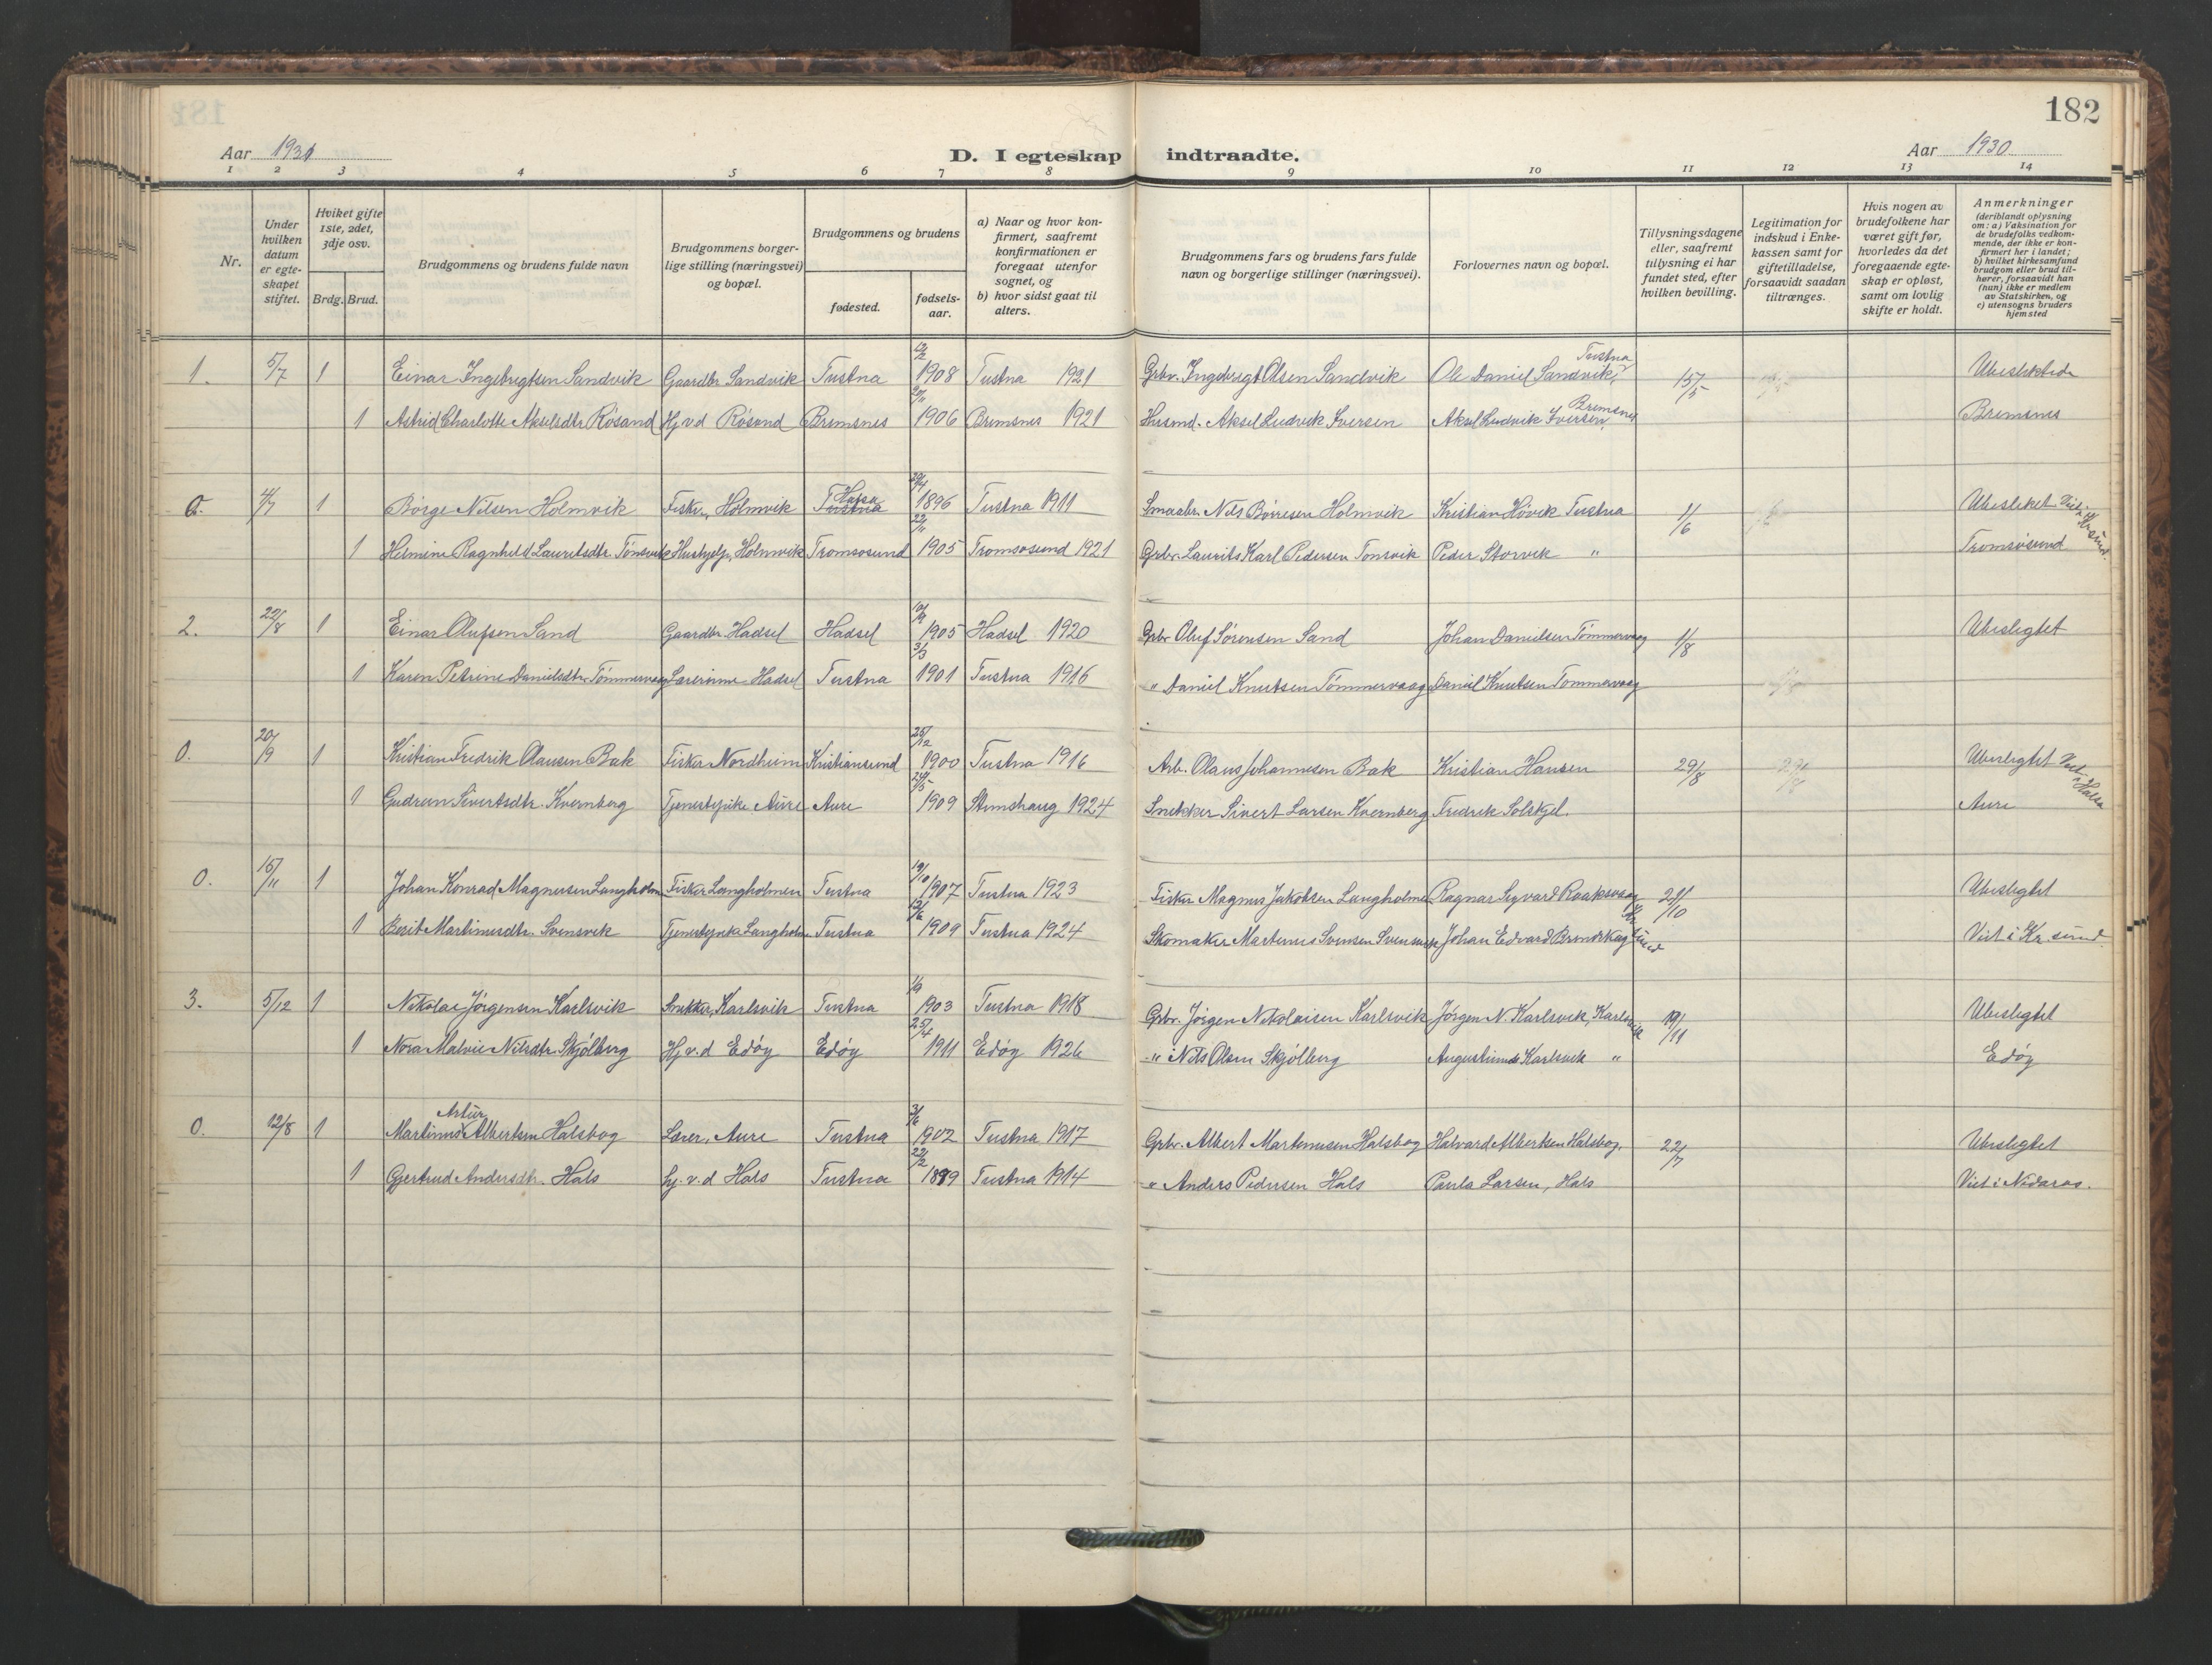 182
Aar 1930
D. I egteskap indtraadte.
Aar 1930
1 2 3 4 5 6 7 8 9 10 11 12 13 14
Nr.
Under hvilken datum er egteskapet stiftet.
Hvilket gifte 1ste, 2det, 3dje osv.
Brdg. Brud.
Brudgommens og brudens fulde navn
Brudgommens borgerlige stilling (næringsvei) og bopæl.
Brudgommens og brudens
fødested.
fødselsaar.
a) Naar og hvor konfirmert, saafremt konfirmationen er foregaat utenfor sognet, og
b) hvor sidst gaat til alters.
Brudgommens fars og brudens fars fulde navn og borgerlige stillinger (næringsvei).
Forlovernes navn og bopæl.
Tillysningsdagene eller, saafremt tillysning ei har fundet sted, efter hvilken bevilling.
Legitimation for indskud i Enkekassen samt for giftetilladelse, forsaavidt saadan tiltrænges.
Hvis nogen av brudefolkene har været gift før, hvorledes da det foregaaende egteskap er opløst, samt om lovlig skifte er holdt.
Anmerkninger
(deriblandt oplysning om: a) Vaksination for de brudefolks vedkommende, der ikke er konfirmert her i landet; b) hvilket kirkesamfund brudgom eller brud tilhører, forsaavidt han (hun) ikke er medlem av Statskirken, og c) utensogns bruders hjemsted
1. 5/7 1 Einar Ingebrigtsen Sandvik Gaardbr Sandvik Tustna 1908 Tustna 1921 Grbr. Ingebrigt Olsen Sandvik Ole Daniel Sandvik, Tustna 15/5 Ubeslektede
1 Astrid Charlotte Akselsdtr Rösand Hj v.d Rösand Bremsnes 1906 Bremsnes 1921 Husmd. Aksel Ludvik Iversen Aksel Ludvik Iversen, Bremsnes Bremsnes
0. 4/7 1 Børge Nilsen Holmvik Fisker, Holmvik Tustna Halsa 1896 Tustna 1911 Smaabr. Nils Börresen Holmvik Kristian Hövik Tustna 1/6 Ubeslektet Viet i Kr.sund.
1 Helmine Ragnhild Lauritsdtr Tönsvik Hushjelp, Holmvik Tromsosund 1905 Tromsosund 1921 Grbr. Laurits Karl Pedersen Tonsvik Peder Storvik " Tromsösund
2. 22/8 1 Einar Olufsen Sand Gaardbr. Hadsel Hadsel 1905 Hadsel 1920 Grbr Oluf Sörensen Sand Johan Danielsen Tömmervaag 1/8 Ubeslegtet
1 Karen Petrine Danielsdtr. Tömmervaag Lærerinne Hadsel Tustna 3/3 1901 Tustna 1916 " Daniel Knutsen Tömmervaag Daniel Knutsen Tommervaag
0. 20/9 1 Kristian Fredrik Olausen Bak Fisker Nordheim Kristiansund 25/12 1900 Tustna 1916 Arb. Olaus Johannesen Bak Kristian Hansen 29/8 Ubeslegtet Viet i Halsa
1 Gudrun Sivertsdtr. Kvernberg Tjenestepike Aure Aure 1909 Stemshaug 1924 Snekker Sivert Larsen Kvernberg Fredrik Solskjel. Aure
0. 15/11 1 Johan Konrad Magnusen Langholm Fisker Langholmen Tustna 19/10 1907 Tustna 1923 Fisker Magnus Jakobsen Langholmen Ragnar Sigvard Raaksvaag 21/10 Ubeslegtet
1 Berit Martinusdtr. Svensvik Tjenestepike Langholm Tustna 1909 Tustna 1924 Skomaker Martinus Svensen Svensvik Johan Edvard Brendskag Kr.sund Viet i Kr.sund.
3. 5/12 1 Nikolai Jörgensen Karlsvik Snekker, Karlsvik Tustna 1903 Tustna 1918 Grbr. Jörgen Nikolaisen Karlsvik Jörgen N. Karlsvik, Karlsvik 19/11 Ubeslegtet
1 Nora Malvie Nilsdtr. Skjölberg Hj. v. d Edöy Edöy 25/4 1911 Edöy 1926 " Nils Olsen Skjölberg Augustinus Karlsvik " Edöy
0. 12/8 1 Martinus Artur Albertsen Halsbog Lærer, Aure Tustna 3/6 1902 Tustna 1917 Grbr. Albert Martinusen Halsbog Halvard Albertsen Halsbog. 22/7 Ubeslegtet
1 Gjertrud Andersdtr. Hals hj. v. d Hals Tustna 22/2 1899 Tustna 1914 " Anders Pedersen Hals Paula Larsen, Hals Viet i Nidaros.